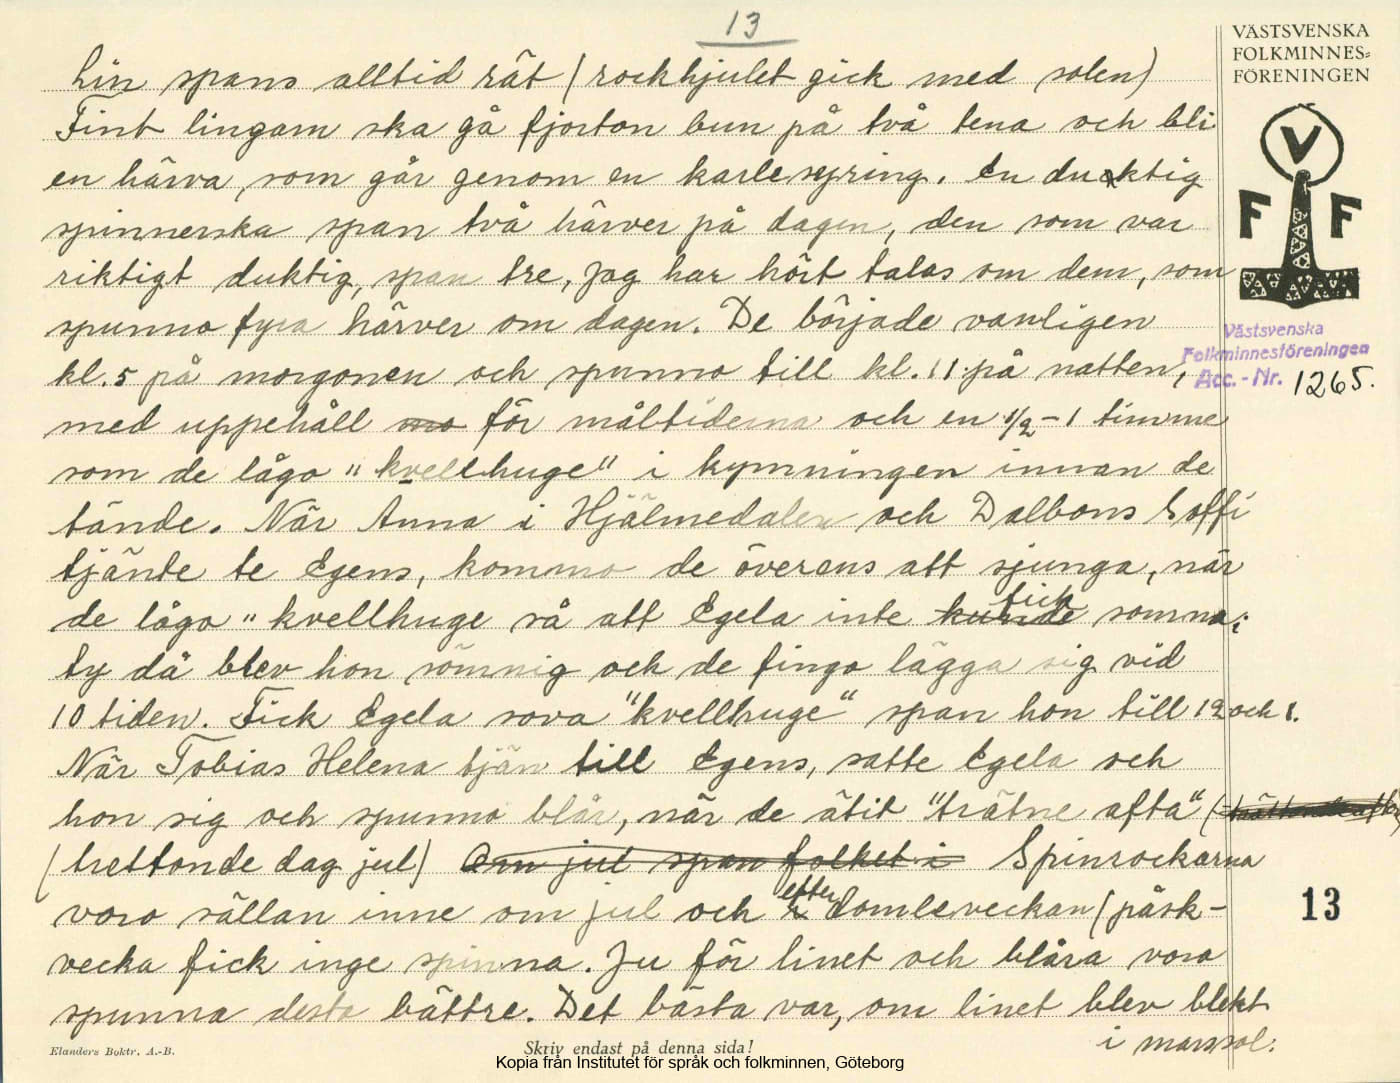 13
VÄSTSVENSKA
FOLKMINNES=
FÖRENINGEN
V
F F
Västsvenska
Folkminnesföreningen
Acc.-Nr. 1265.
Lin spans alltid rät (rockhjulet gick med solen)
Fint lingarn ska gå fjorton bun på två tena och bli
en härva, som går genom en karlesyring. En duktig
spinnerska span två härver på dagen, den som var
riktigt duktig, span tre, Jag har hört talas om dem, som
spunno fyra härver om dagen. De började vanligen
kl. 5 på morgonen och spunno till kl. 11 på natten,
med uppehåll mo för måltiderna och en 1/2 - 1 timme
som de lågo "kvellhuge" i kymningen innan de
tände. När Anna i Hjälmedalen och Dalbons Soffi
tjänte te Egens, kommo de överens att sjunga, när
de lågo "kvellhuge så att Egela inte kunde fick somna;
ty då blev hon sömnig och de fingo lägga sig vid
10 tiden. Fick Egela sova "kvellhuge" span hon till 12 och 1.
När Tobias Helena tjän till Egens, satte Egela och
hon sig och spunno blår, när de ätit "trätne afta" (
(trettonde dag jul) Om jul span folket i Spinrockarna
voro sällan inne om jul och i efter domleveckan (påsk-
vecka fick inge spinna. Ju för linet och blåra voro
spunna desto bättre. Det bästa var, om linet blev blekt
i marssol.
13
Elanders Boktr. A.-B.
Skriv endast på denna sida!
Kopia från Institutet för språk och folkminnen, Göteborg